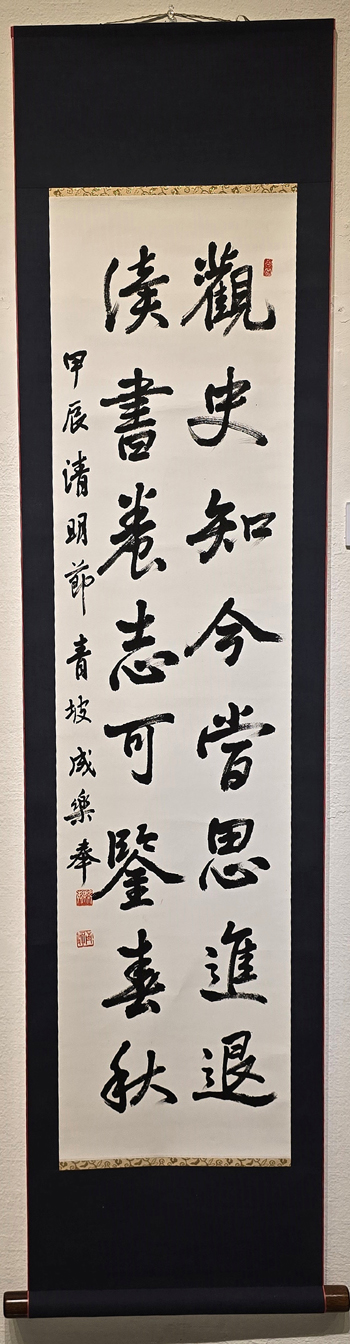 觀史知今當思進退
讀書養志可鑒春秋
甲辰清明節青坡成樂奉